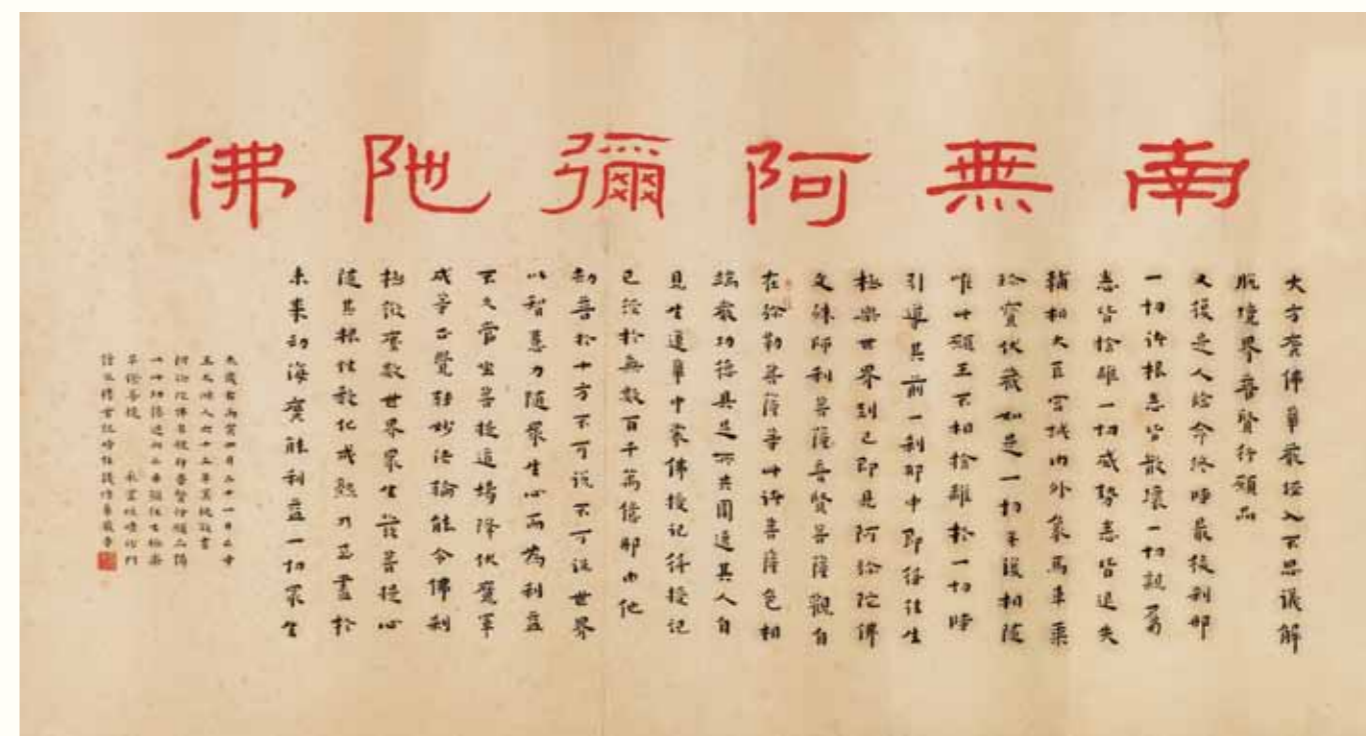 南無阿彌阤佛
大方廣佛華嚴經入不思議解
脫境界普賢行願品
又復是人臨命終時最後剎那
一切諸根悉皆散壞一切親屬
悉皆捨離一切威勢悉皆退失
輔相大臣宮城內外象馬車乘
珍寶伏藏如是一切無復相隨
唯此願王不相捨離於一切時
引導其前一剎那中即得往生
極樂世界到已即見阿彌陀佛
文殊師利菩薩普賢菩薩觀自
在彌勒菩薩等此諸菩薩色相
端嚴功德具足所共圍遶其人自
見生蓮華中蒙佛授記得授記
已經於無數百千萬億那由他
劫普於十方不可說不可說世界
以智慧力隨眾生心而為利益
不久當坐菩提道場降伏魔軍
成等正覺轉妙法輪能令佛剎
極微塵數世界眾生發菩提心
隨其根性教化成熟乃至盡於
未來劫海廣能利益一切眾生
四月二十一日亡母
敬書
阿彌陀佛名號并普賢行願品偈
以此功德迴向亡母願往生極樂
早證菩提 永寧晚晴沙門